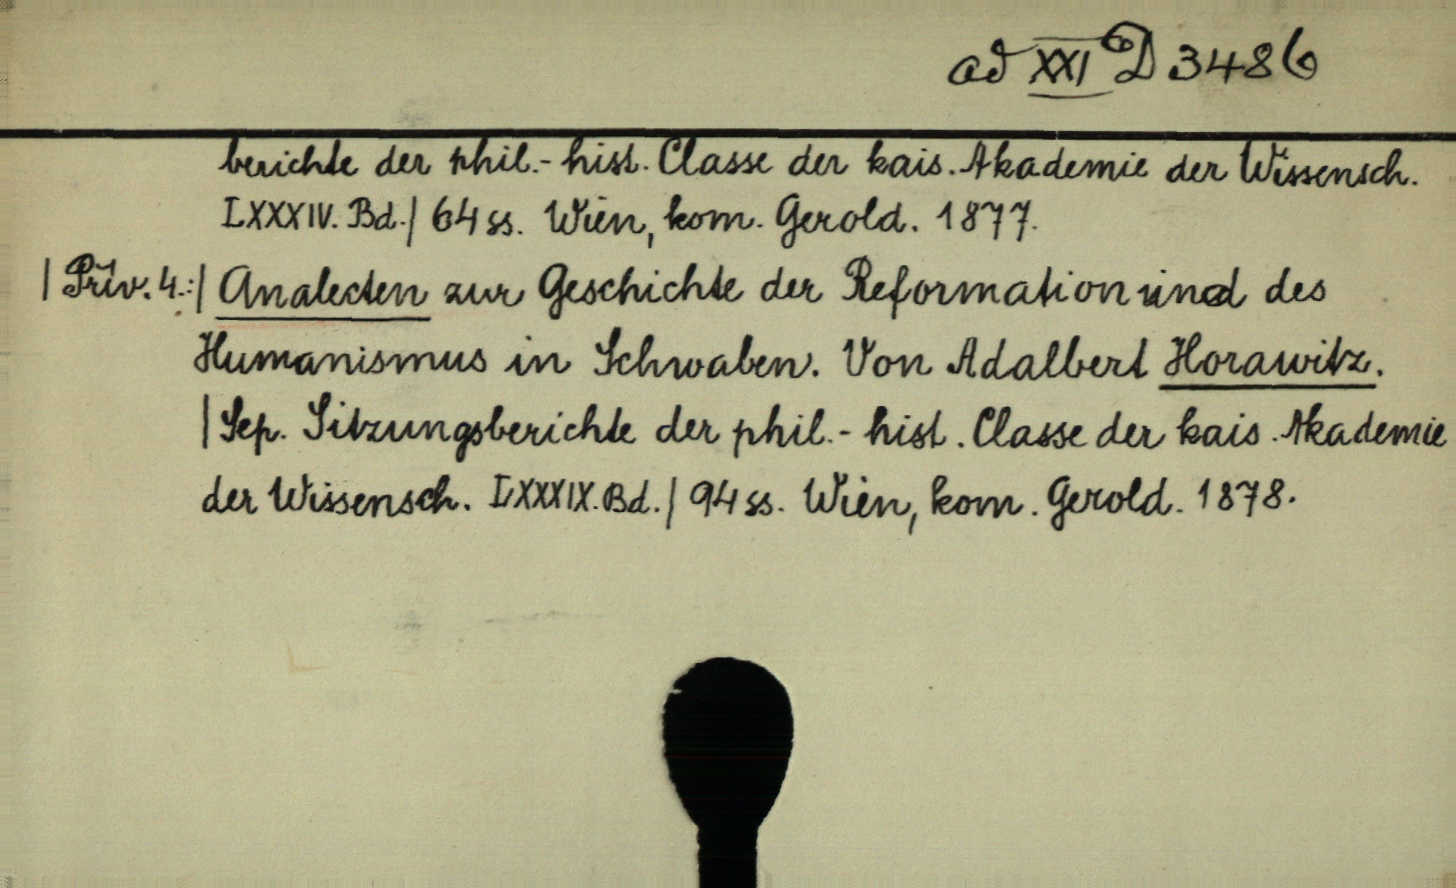 ad XXI D 3486
berichte der phil.-hist. Classe der kais. Akademie der Wissensch.
LXXXIV. Bd./ 64 ss. Wien, kom. Gerold. 1877.
| Přív. 4.:| Analecten zur Geschichte der Reformation und des
Humanismus in Schwaben. Von Adalbert Horawitz.
| Sep. Sitzungsberichte der phil.-hist. Classe der kais. Akademie
der Wissensch. LXXXIX. Bd./ 94 ss. Wien, kom. Gerold. 1878.